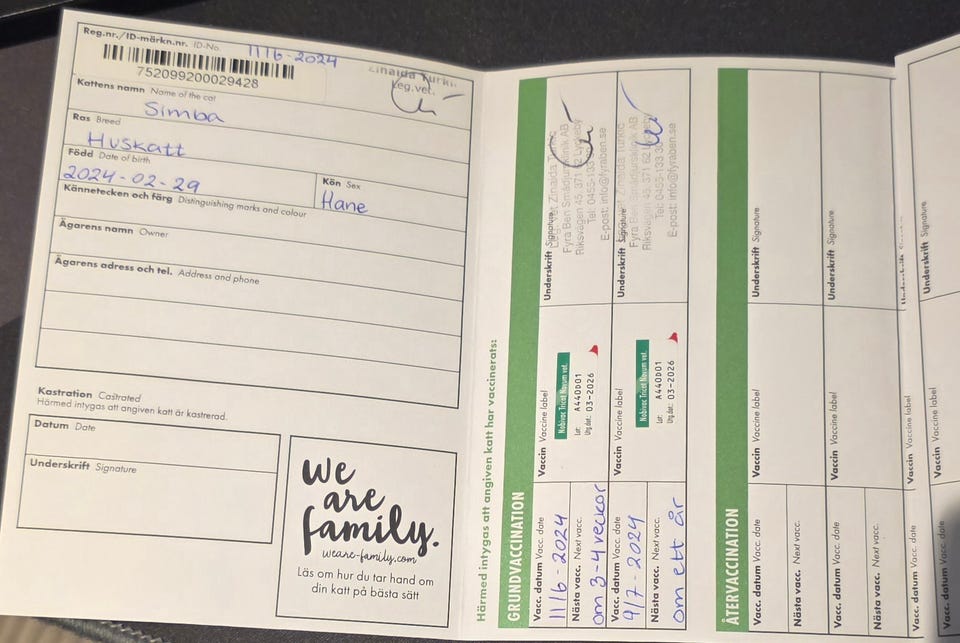 Reg.nr./ID-märkn.nr. ID-No. 11/6-2024
752099200029428
Zinaida Turkic
Leg.vet.
Kattens namn Name of the cat
Simba
Ras Breed
Huskatt
Född Date of birth
2024-02-29
Kön Sex
Hane
Kännetecken och färg Distinguishing marks and colour
Ägarens namn Owner
Ägarens adress och tel. Address and phone
Kastration Castrated
Härmed intygas att angiven katt är kastrerad.
Datum Date
Underskrift Signature
we
are
family.
weare-family.com
Läs om hur du tar hand om
din katt på bästa sätt
Härmed intygas att angiven katt har vaccinerats:
GRUNDVACCINATION
Vacc. datum Vacc. date
11/6-2024
Vaccin Vaccine label
Nobivac Tricat Novum vet.
Lot: A440D01
Utg.dat.: 03-2026
Underskrift Signature
Leg. Vet Zinaida Turkic
Fyra Ben Smådjursklinik AB
Riksvägen 45, 371 62 Lyckeby
Tel: 0455-133
E-post: info@fyraben.se
Nästa vacc. Next vacc.
om 3-4 veckor
Vacc. datum Vacc. date
4/7-2024
Vaccin Vaccine label
Nobivac Tricat Novum vet.
Lot: A440D01
Utg.dat.: 03-2026
Underskrift Signature
Leg. Vet Zinaida Turkic
Fyra Ben Smådjursklinik AB
Riksvägen 45, 371 62 Lyckeby
Tel: 0455-133
E-post: info@fyraben.se
Nästa vacc. Next vacc.
om ett år
ÅTERVACCINATION
Vacc. datum Vacc. date
Vaccin Vaccine label
Underskrift Signature
Nästa vacc. Next vacc.
Vacc. datum Vacc. date
Vaccin Vaccine label
Underskrift Signature
Nästa vacc. Next vacc.
Vacc. datum Vacc. date
Vaccin Vaccine label
Underskrift Signature
Vacc. datum Vacc. date
Vaccin Vaccine label
Underskrift Signature